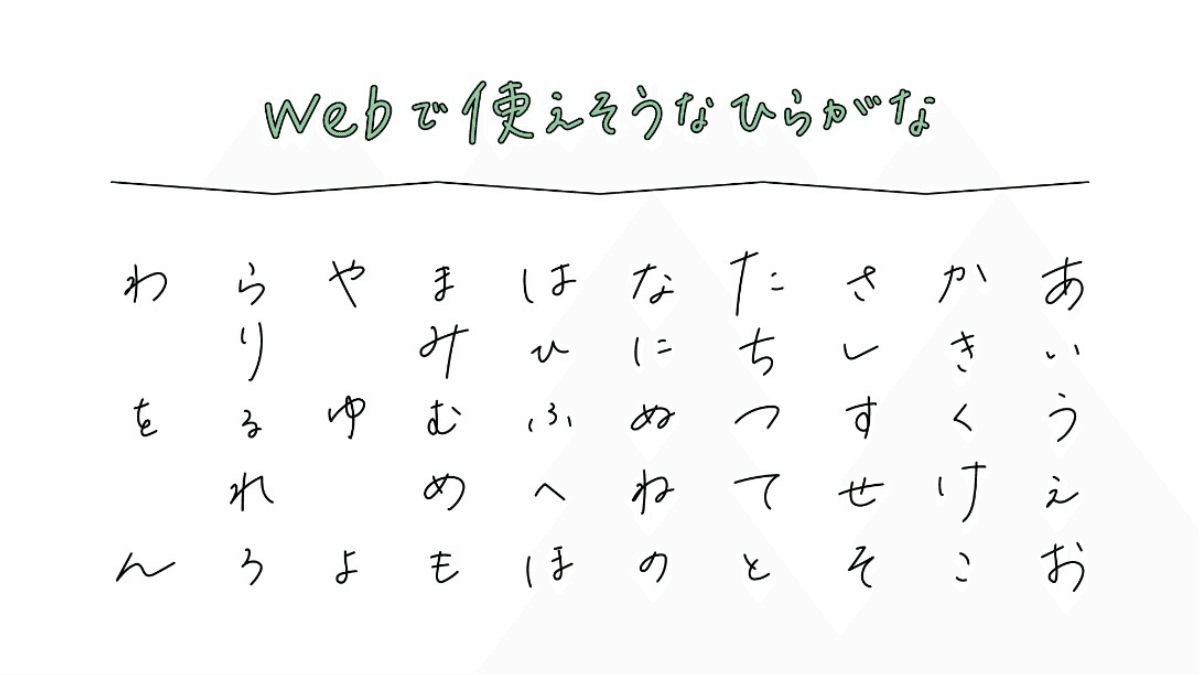 Webで使えそうなひらがな
あいうえお
かきくけこ
さしすせそ
たちつてと
なにぬねの
はひふへほ
まみむめも
やゆよ
らりるれろ
わをん